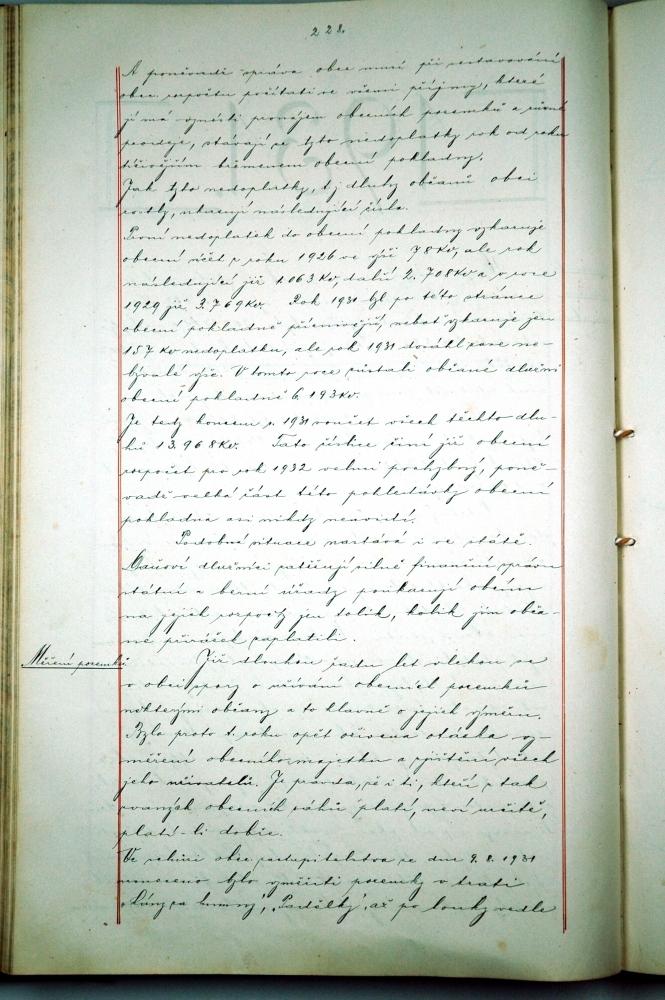 228.
A poněvadž správa obce musí při sestavování
obec. rozpočtu počítati se všemi příjmy, které
jí má vynésti pronájem obecních pozemků a různé
prodeje, stávají se tyto nedoplatky rok od roku
tíživějším břemenem obecní pokladny.
Jak tyto nedoplatky, t.j. dluhy občanů obci
rostly, ukazují následující čísla.
První nedoplatek do obecní pokladny vykazuje
obecní účet z roku 1926 ve výši 78 Kč, ale rok
následující již 1.063 Kč, další 2.708 Kč a v roce
1929 již 3.769 Kč. Rok 1930 byl po této stránce
obecní pokladně příznivější, neboť vykazuje jen
157 Kč nedoplatku, ale rok 1931 dosáhl zase ne-
bývalé výše. V tomto roce zůstali občané dlužni
obecní pokladně 6.193 Kč.
Je tedy koncem r. 1931 součet všech těchto dlu-
hů 13.968 Kč. Tato číslice činí již obecní
rozpočet pro rok 1932 velmi pochybný, poně-
vadž velká část této pohledávky obecní
pokladna asi nikdy neuvidí.
Podobná situace nastává i ve státě.
Daňoví dlužníci zatěžují silně finanční správu
státní a berní úřady poukazují obcím
na jejich rozpočty jen tolik, kolik jim obča-
né přirážek zaplatili.
Měření pozemků
Již dlouhou řadu let vlekou se
v obci spory o užívání obecních pozemků
některými občany a to hlavně o jejich výměru.
Byla proto t. roku opět oživena otázka vy-
měření obecního majetku a zjištění všech
jeho uživatelů. Je pravda, že i ti, kteří z tak
zvaných obecních záhů platí, není určité,
platí-li dobře.
Ve schůzi obec. zastupitelstva ze dne 9. 8. 1931
usneseno bylo vyměřiti pozemky v trati
za humny, "Padělky", až po louky vedle